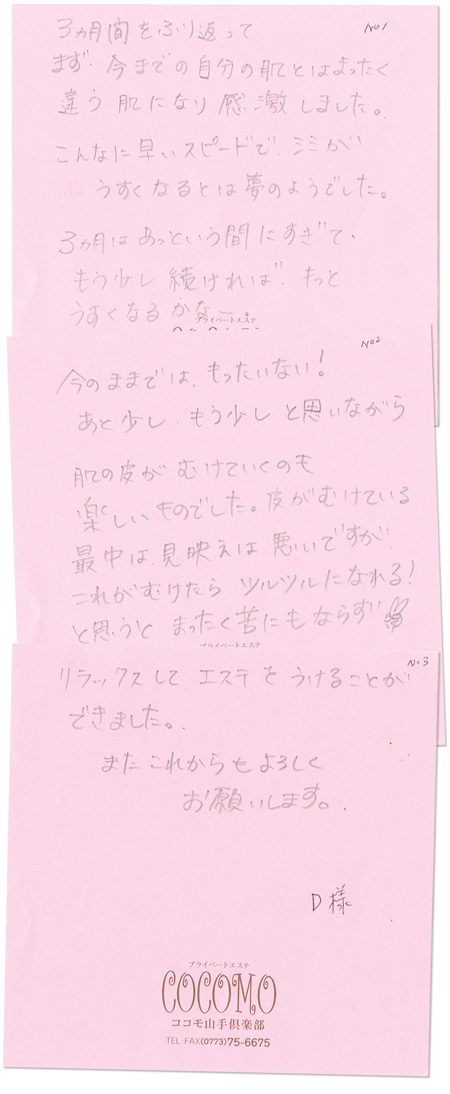 No1
3ヵ月間をふり返って.
まず.今までの自分の肌とはまったく
違う肌になり感激しました。
こんなに早いスピードで.シミが
うすくなるとは夢のようでした。
3ヵ月はあっという間にすぎて.
もう少し続ければ.もっと
うすくなるかなー。
プライベートエステ
No2
今のままでは.もったいない!
あと少し.もう少しと思いながら
肌の皮がむけていくのも
楽しいものでした。皮がむけている
最中は.見映えは悪いですが
これがむけたらツルツルになれる!
と思うとまったく苦にもならず
プライベートエステ
No3
リラックスしてエステをうけることが
できました。
またこれからもよろしく
お願いします。
D様
プライベートエステ
COCOMO
ココモ山手倶楽部
TEL・FAX(0773)75-6675